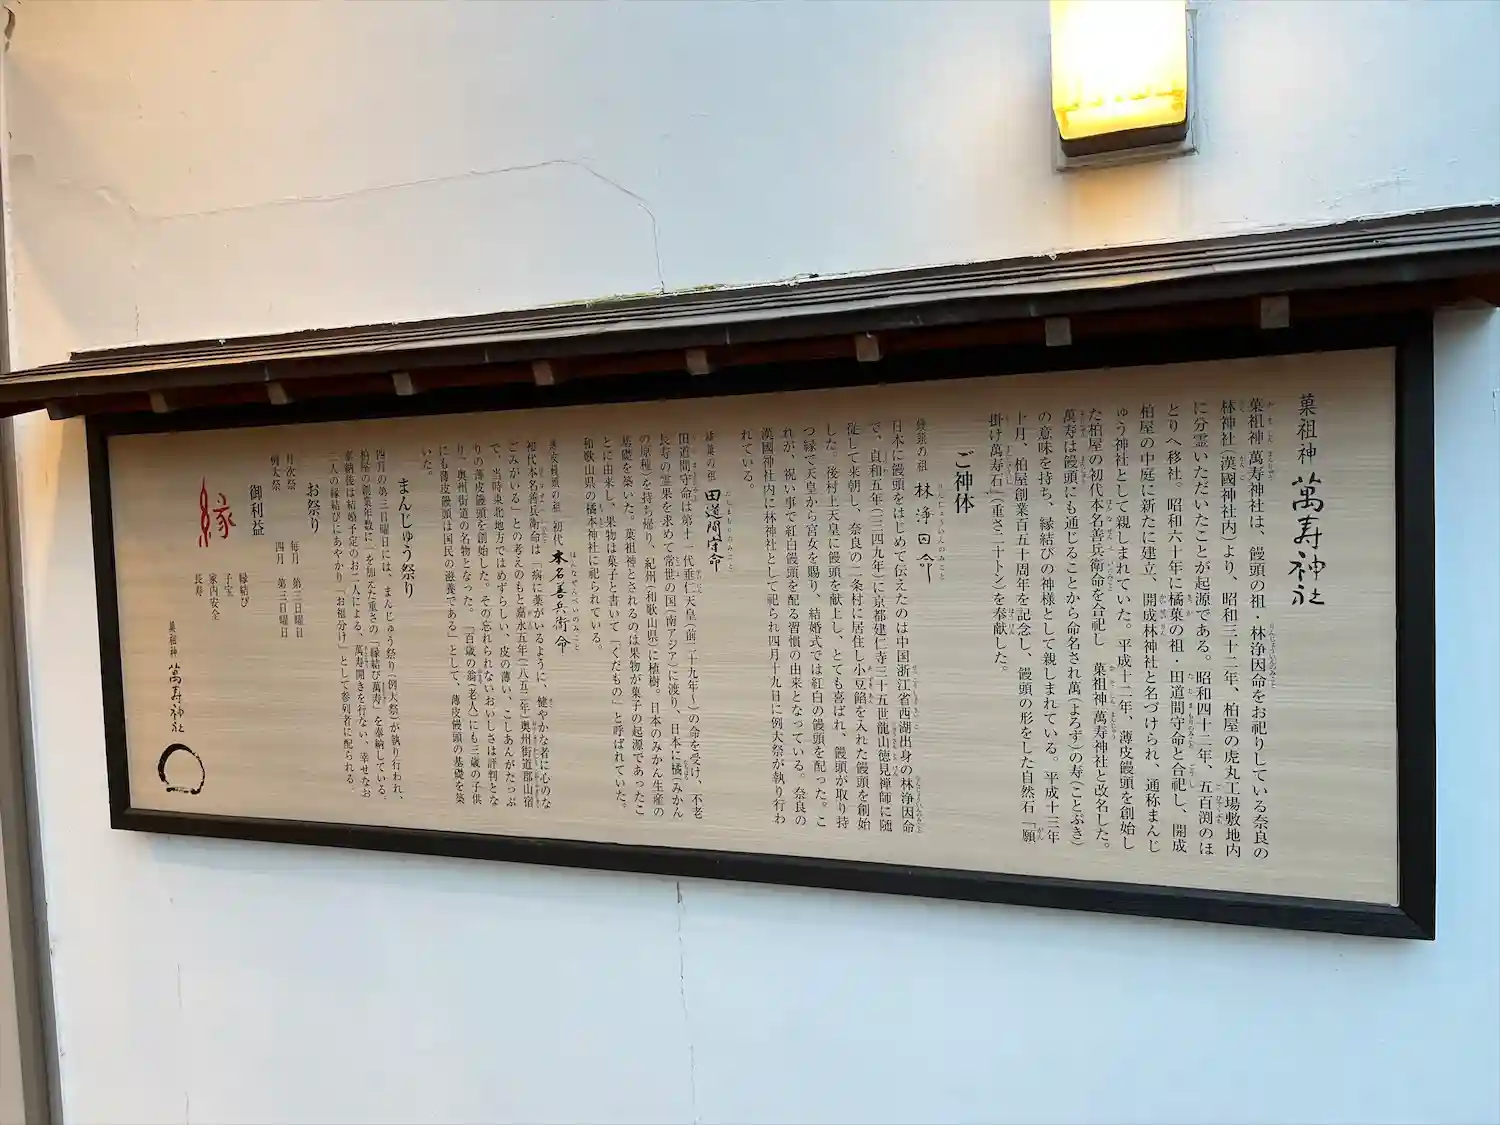 菓祖神 萬寿神社
菓祖神 萬寿神社は、饅頭の祖・林浄因命をお祀りしている奈良の
林神社（漢國神社内）より、昭和三十二年、柏屋の虎丸工場敷地内
に分霊いただいたことが起源である。昭和四十二年、五百渕のほ
とりへ移社。昭和六十年に橘菓の祖・田道間守命と合祀し、開成
柏屋の中庭に新たに建立、開成林神社と名づけられ、通称まんじ
ゅう神社として親しまれていた。平成十二年、薄皮饅頭を創始し
た柏屋の初代本名善兵衛命を合祀し 菓祖神 萬寿神社と改名した。
萬寿は饅頭にも通じることから命名され萬（よろず）の寿（ことぶき）
の意味を持ち、縁結びの神様として親しまれている。平成十三年
十月、柏屋創業百五十周年を記念し、饅頭の形をした自然石「願
掛け萬寿石」（重さ二十トン）を奉献した。
ご神体
饅頭の祖 林浄因命
日本に饅頭をはじめて伝えたのは中国浙江省西湖出身の林浄因命
で、貞和五年（一三四九年）に京都建仁寺三十五世龍山徳見禅師に随
従して来朝し、奈良の二条村に居住し小豆餡を入れた饅頭を創始
した。後村上天皇に饅頭を献上し、とても喜ばれ、饅頭が取り持
つ縁で天皇から宮女を賜り、結婚式では紅白の饅頭を配った。こ
れが、祝い事で紅白饅頭を配る習慣の由来となっている。奈良の
漢國神社内に林神社として祀られ四月十九日に例大祭が執り行わ
れている。
橘菓の祖 田道間守命
田道間守命は第十一代垂仁天皇（前二十九年〜）の命を受け、不老
長寿の霊果を求めて常世の国（南アジア）に渡り、日本に橘（みかん
の原種）を持ち帰り、紀州（和歌山県）に植樹。日本のみかん生産の
基礎を築いた。菓祖神とされるのは果物が菓子の起源であったこ
とに由来し、果物は菓子と書いて「くだもの」と呼ばれていた。
和歌山県の橘本神社に祀られている。
薄皮饅頭の祖 初代 本名善兵衛命
初代本名善兵衛命は「病に薬がいるように、健やかな者に心のな
ごみがいる」との考えのもと嘉永五年（一八五二年）奥州街道郡山宿
で、当時東北地方ではめずらしい、皮の薄い、こしあんがたっぷ
りの薄皮饅頭を創始した。その忘れられないおいしさは評判とな
り、奥州街道の名物となった。「百歳の翁（老人）にも三歳の子供
にも薄皮饅頭は国民の滋養である」として、薄皮饅頭の基礎を築
いた。
まんじゅう祭り
四月の第三日曜日には、まんじゅう祭り（例大祭）が執り行われ、
柏屋の創業年数に一を加えた重さの「縁結び萬寿」を奉納している。
奉納後は結婚予定のお二人による、萬寿開きを行ない、幸せなお
二人の縁結びにあやかり「お祖分け」として参列者に配られる。
お祭り
月次祭 毎月 第三日曜日
例大祭 四月 第三日曜日
御利益
縁結び
子宝
家内安全
長寿
縁
菓祖神 萬寿神社